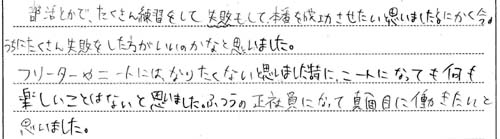 部活とかで、たくさん練習をして失敗もして、本番を成功させたいと思いましたとにかく今の
うちにたくさん失敗をした方がいいのかなと思いました。
フリーターやニートには、なりたくないと思いました特に、ニートになっても何も
楽しいことはないと思いました。ふつうの正社員になって真面目に働きたいと
思いました。